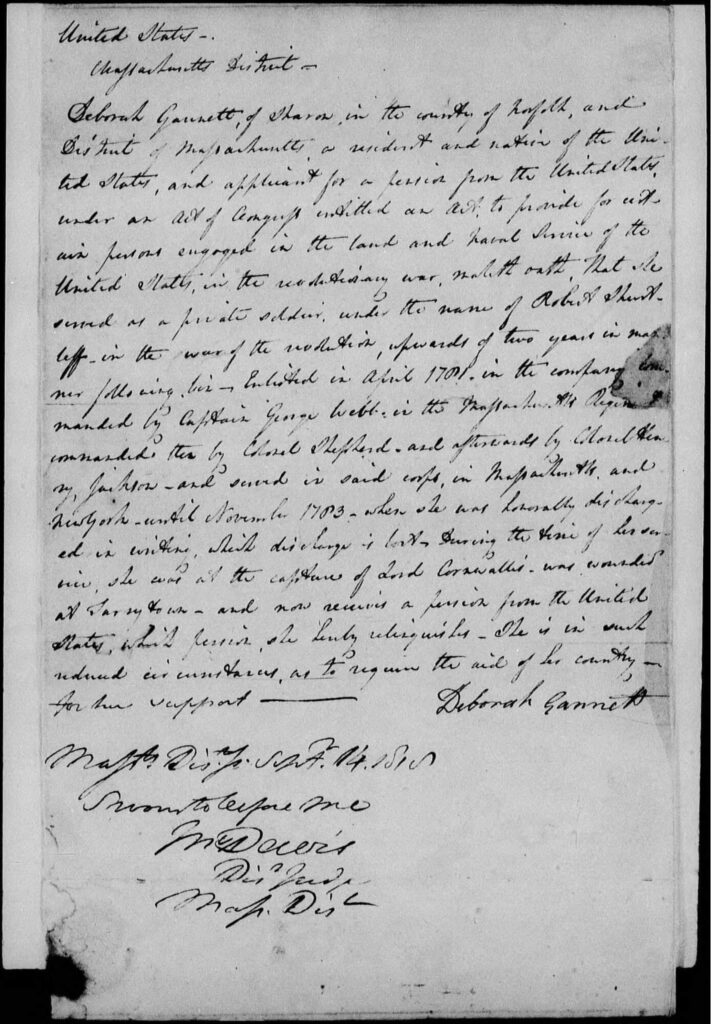 United States -.
Massachusetts District -
Deborah Gannett, of Sharon, in the county of Norfolk, and
District of Massachusetts, a resident and native of the Uni-
ted States, and applicant for a pension from the United States,
under an Act of Congress entitled an Act, to provide for cert-
ain persons engaged in the land and naval Service of the
United States, in the revolutionary war, maketh oath, That she
served as a private soldier, under the name of Robert Shurt-
leff - in the war of the revolution, upwards of two years in man-
ner following, viz - Enlisted in April 1781 - in the company com-
manded by Captain George Webb - in the Massachusetts Regiment
commanded then by Colonel Shepherd - and afterwards by Colonel Hen-
ry, Jackson - and served in said corps, in Massachusetts, and
New York - until November 1783 - when she was honorably discharg-
ed in writing, which discharge is lost - During the time of her ser-
vice, she was at the capture of Lord Cornwallis - was wounded
at Tarrytown - and now receives a pension from the United
States, which pension, she hereby relinquishes - She is in such
reduced circumstances, as to require the aid of her country -
for her support -
Deborah Gannett
Massts. Dist. Sept. 14. 1818
Sworn to before me
Davis
Dist Judge
Mass. Dist